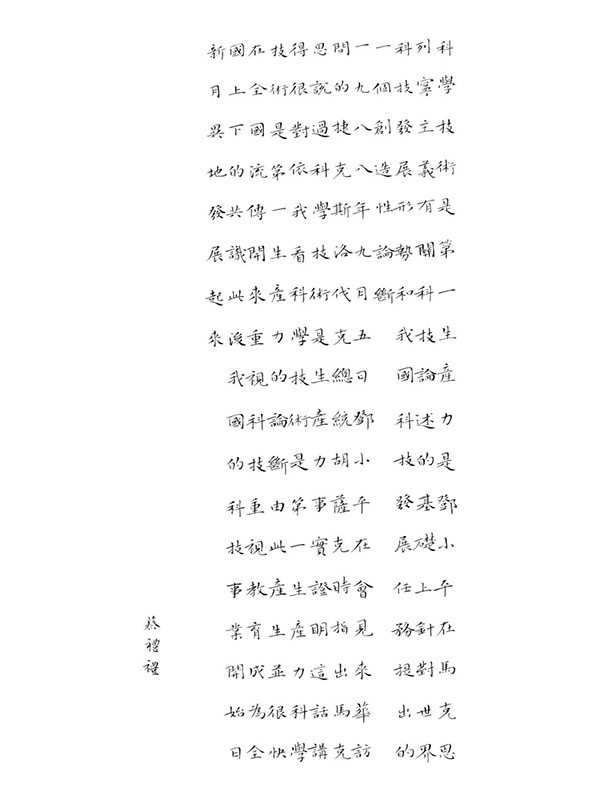 科學技術是第一生產力是鄧小平在馬克思
列寧主義有關科技論述的基礎上針對世界
科技發展形勢和我國科技發展任務提出的
一個創造性論斷
一九八八年九月五日鄧小平在會見來華訪
問的捷克斯洛代克總統胡薩克時指出馬克
思説過科學技術是生產力事實證明這話講
得很對依我看科學技術是第一生產力科學
技術是第一生產力的論斷由此產生並很快
在全國流傳開來重視科技重視教育成為全
國上下的共識此後我國的科技事業開始日
新月異地發展起來
蔡禮禮